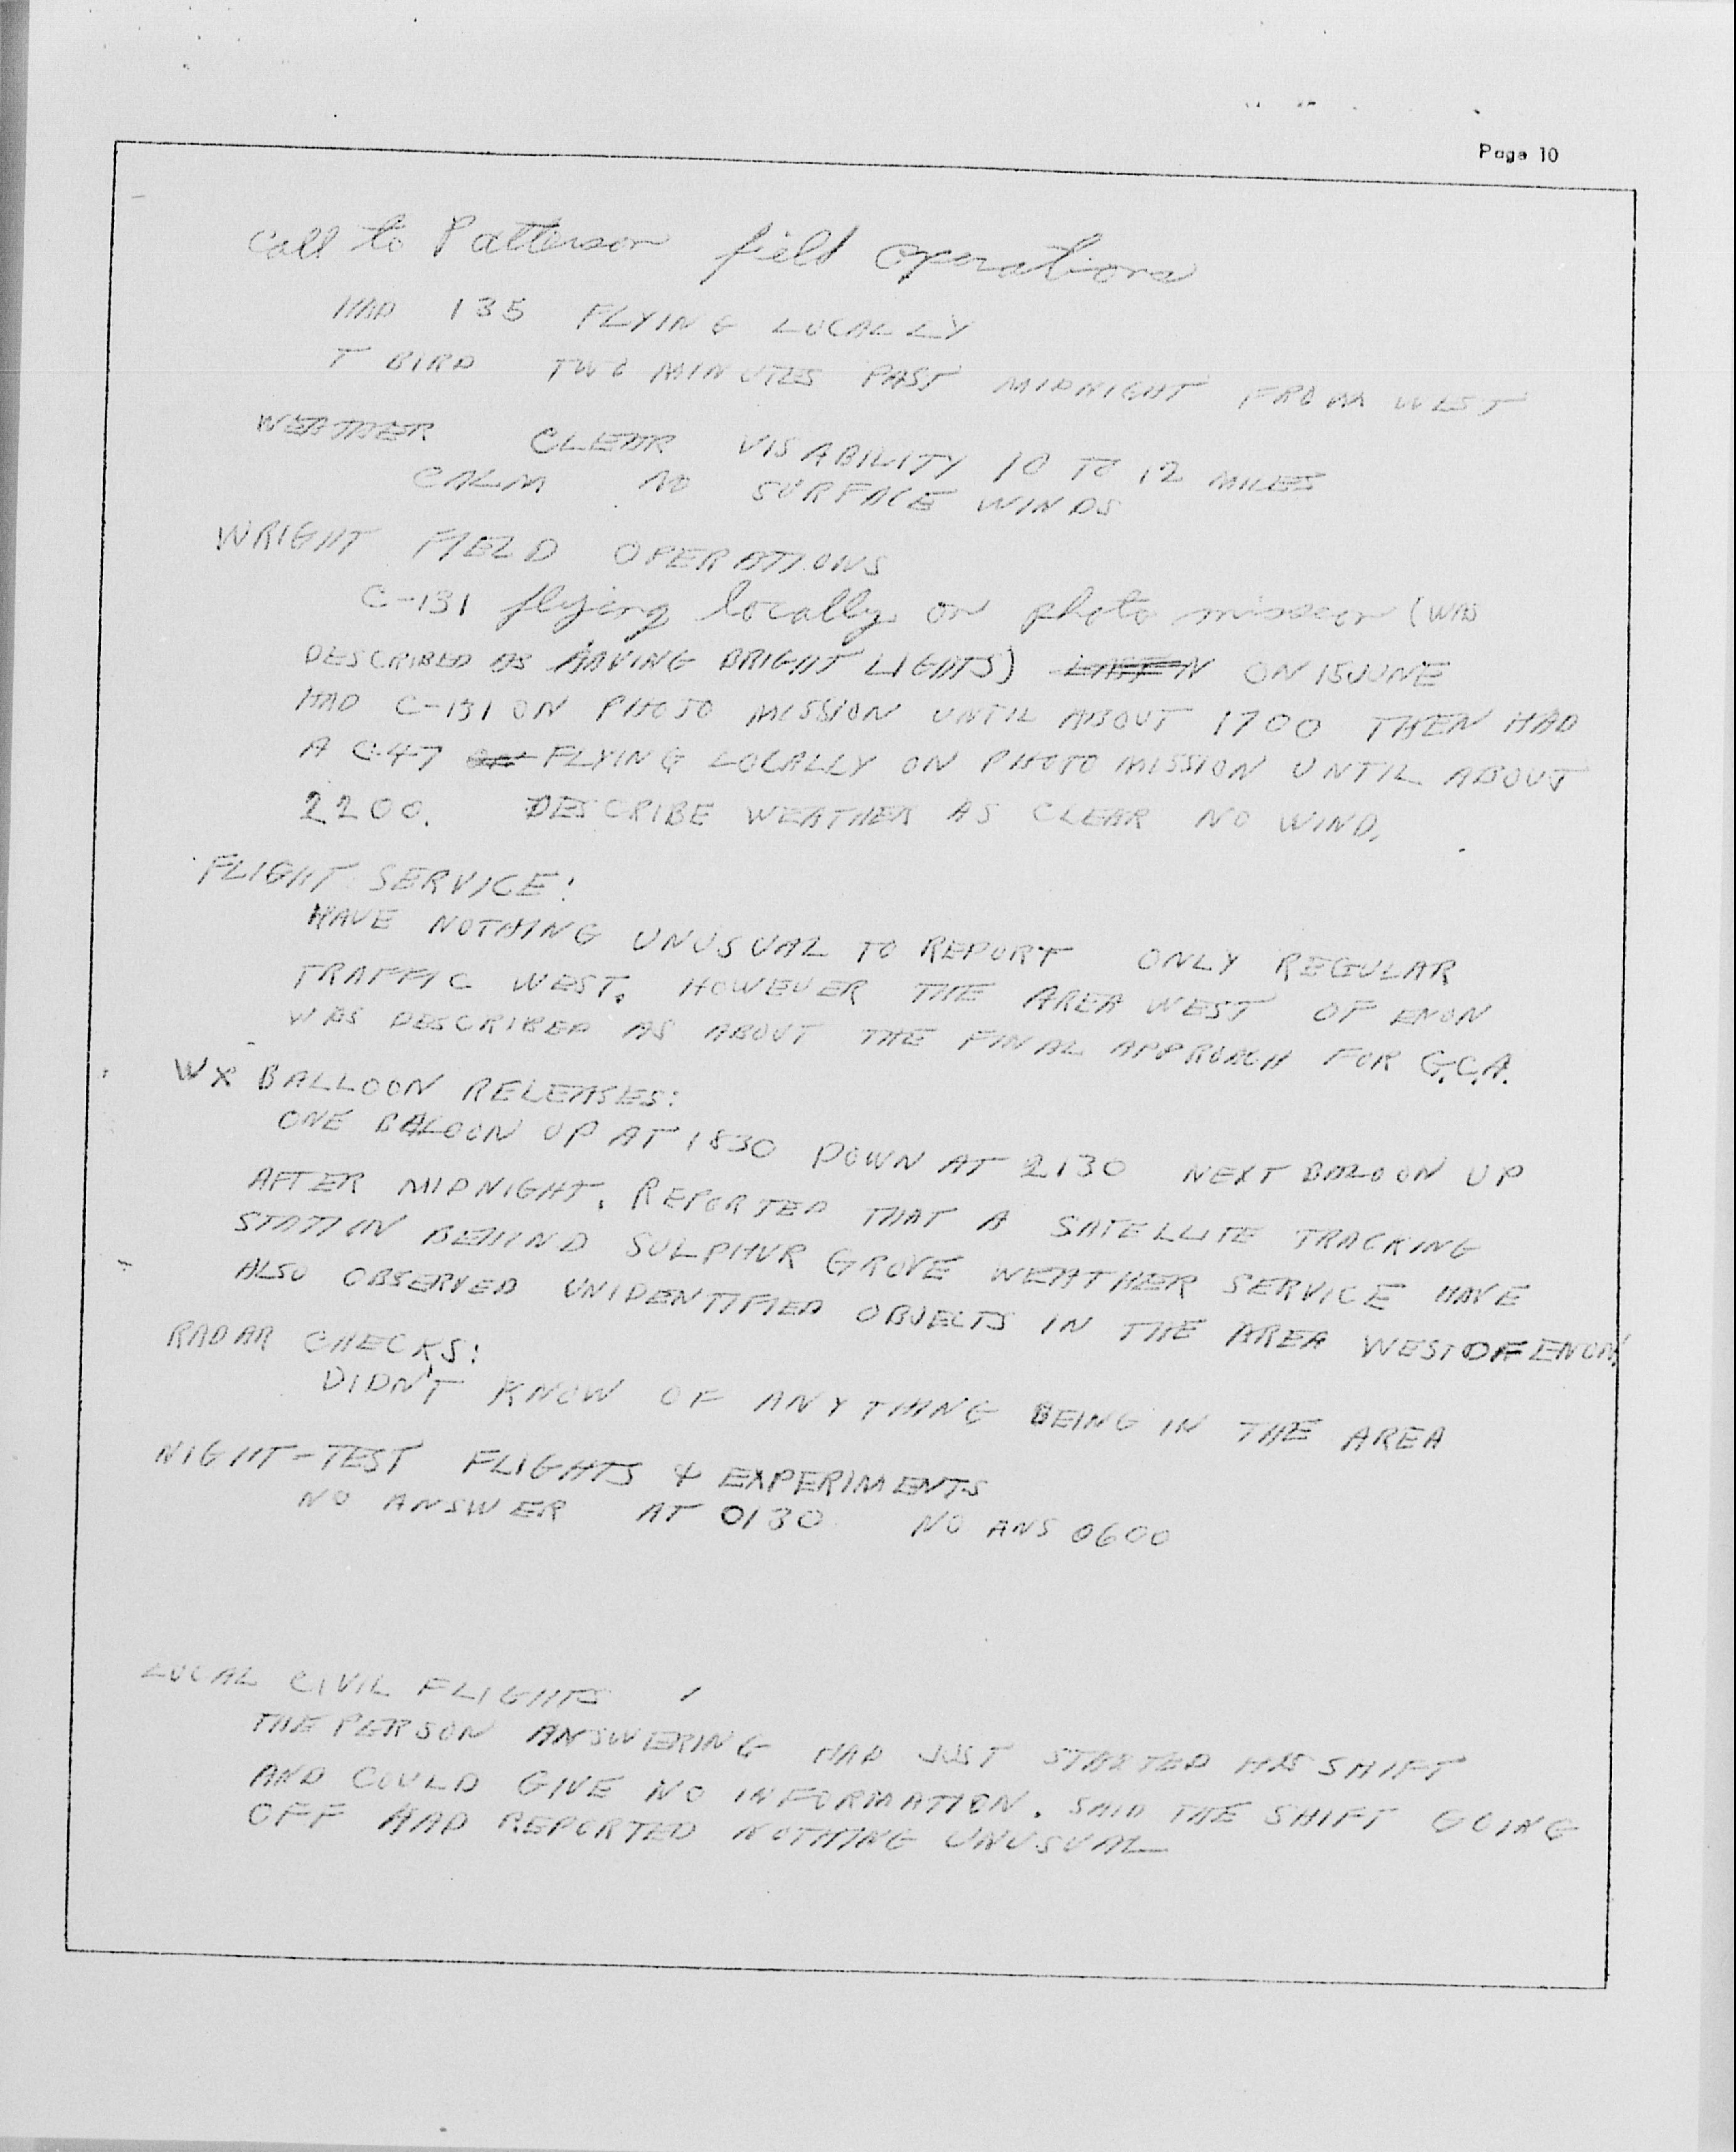 Page 10
Call to Patterson field operations
HAD 135 FLYING LOCALLY
T BIRD TWO MINUTES PAST MIDNIGHT FROM WEST
WEATHER CLEAR VISABILITY 10 TO 12 MILES
CALM NO SURFACE WINDS
WRIGHT FIELD OPERATIONS
C-131 flying locally on photo mission (WAS
DESCRIBED AS HAVING BRIGHT LIGHTS) ON 15 JUNE
HAD C-131 ON PHOTO MISSION UNTIL ABOUT 1700 THEN HAD
A C-47 FLYING LOCALLY ON PHOTO MISSION UNTIL ABOUT
2200. DESCRIBE WEATHER AS CLEAR NO WIND.
FLIGHT SERVICE:
HAVE NOTHING UNUSUAL TO REPORT ONLY REGULAR
TRAFFIC WEST. HOWEVER THE AREA WEST OF ENON
WAS DESCRIBED AS ABOUT THE FINAL APPROACH FOR G.C.A.
WX BALLOON RELEASES:
ONE BALOON UP AT 1830 DOWN AT 2130 NEXT BALOON UP
AFTER MIDNIGHT. REPORTED THAT A SATELLITE TRACKING
STATION BEHIND SULPHUR GROVE WEATHER SERVICE HAVE
ALSO OBSERVED UNIDENTIFIED OBJECTS IN THE AREA WEST OF ENON
RADAR CHECKS:
DIDN'T KNOW OF ANYTHING BEING IN THE AREA
NIGHT-TEST FLIGHTS & EXPERIMENTS
NO ANSWER AT 0130 NO ANS 0600
LOCAL CIVIL FLIGHTS
THE PERSON ANSWERING HAD JUST STARTED HIS SHIFT
AND COULD GIVE NO INFORMATION. SAID THE SHIFT GOING
OFF HAD REPORTED NOTHING UNUSUAL